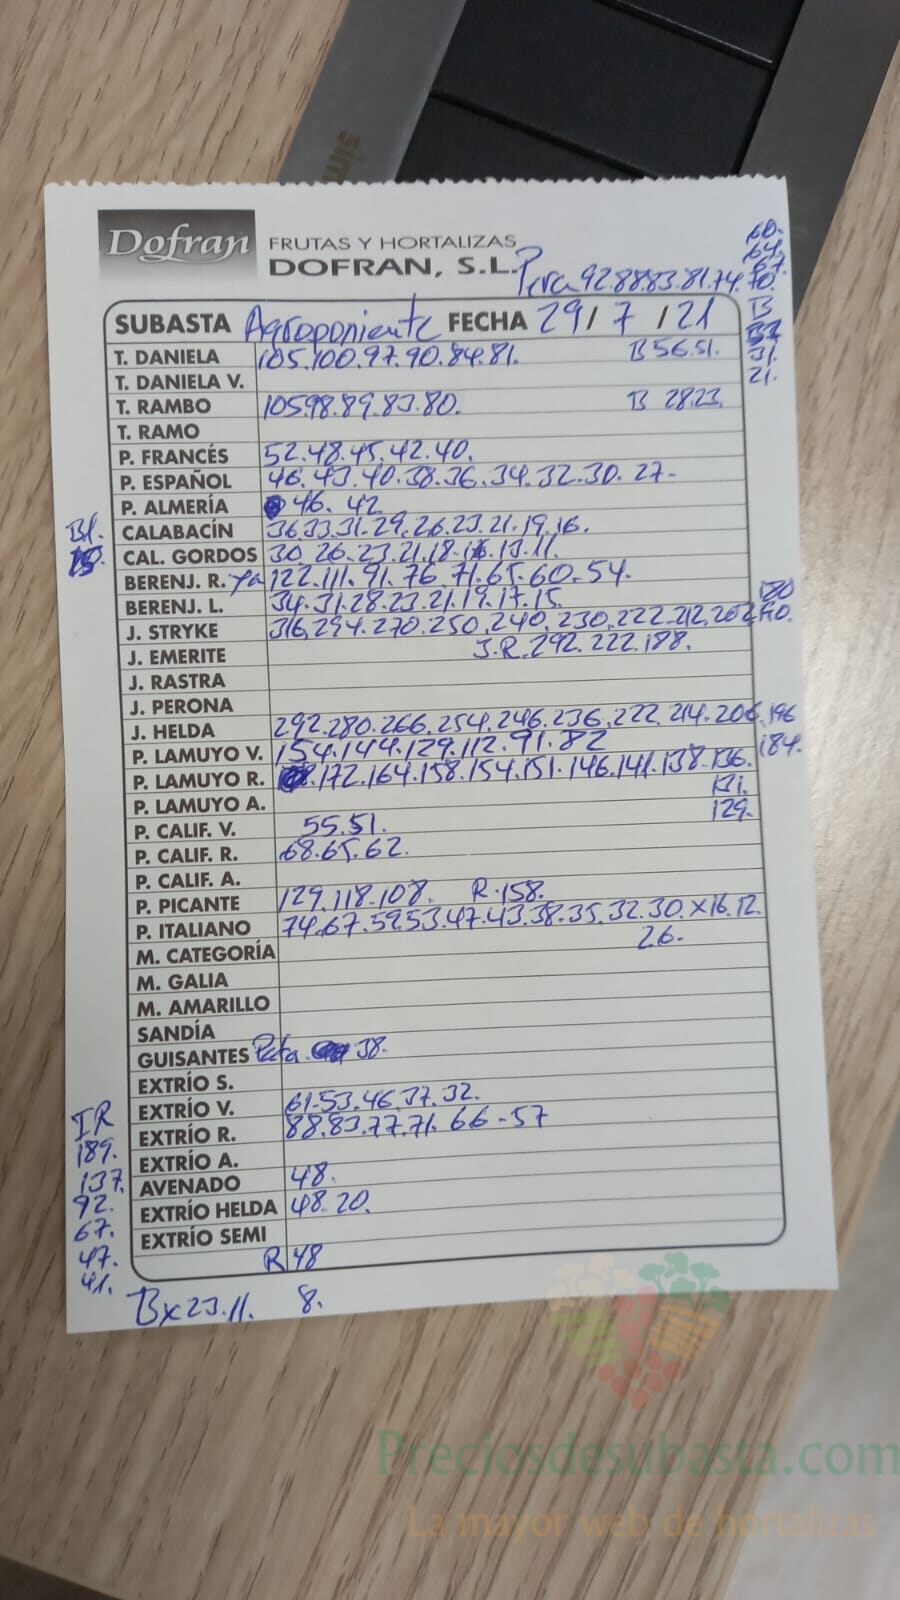 Dofran FRUTAS Y HORTALIZAS
DOFRAN, S.L.
Pera 92.88.83.81.74.70.
60.
64.
67.
B
31.
21.
SUBASTA Agroponiente FECHA 29/7/21
T. DANIELA 105.100.97.90.84.81. B 56.51.
T. DANIELA V.
T. RAMBO 105.98.89.83.80. B 28.23.
T. RAMO
P. FRANCÉS 52.48.45.42.40.
P. ESPAÑOL 46.43.40.38.36.34.32.30.27-
P. ALMERÍA 46.42
Bl.
CALABACÍN 36.33.31.29.26.23.21.19.16.
CAL. GORDOS 30.26.23.21.18.16.13.11.
BERENJ. R. 122.111.91.76.71.65.60.54.
BERENJ. L. 34.31.28.23.21.19.17.15.
J. STRYKE 316.294.270.250.240.230.222.212.202 180
J. EMERITE J.R. 292.222.188.
J. RASTRA
J. PERONA
J. HELDA 292.280.266.254.246.236.222.214.206.196
184.
P. LAMUYO V. 154.144.129.112.91.82
P. LAMUYO R. 172.164.158.154.151.146.141.138.136.
131.
P. LAMUYO A. 129.
P. CALIF. V. 55.51.
P. CALIF. R. 68.65.62.
P. CALIF. A.
P. PICANTE 129.118.108. R.158.
P. ITALIANO 74.67.59.53.47.43.38.35.32.30.X16.12.
26.
M. CATEGORÍA
M. GALIA
M. AMARILLO
SANDÍA
GUISANTES 38.
EXTRÍO S.
EXTRÍO V. 61.53.46.37.32.
EXTRÍO R. 88.83.77.71.66-57
EXTRÍO A.
AVENADO 48.
EXTRÍO HELDA 48.20.
EXTRÍO SEMI
R 48
8.
IR
189.
137.
92.
67.
47.
41.
Bx23.11.
Preciosdesubasta.com
La mayor web de hortalizas